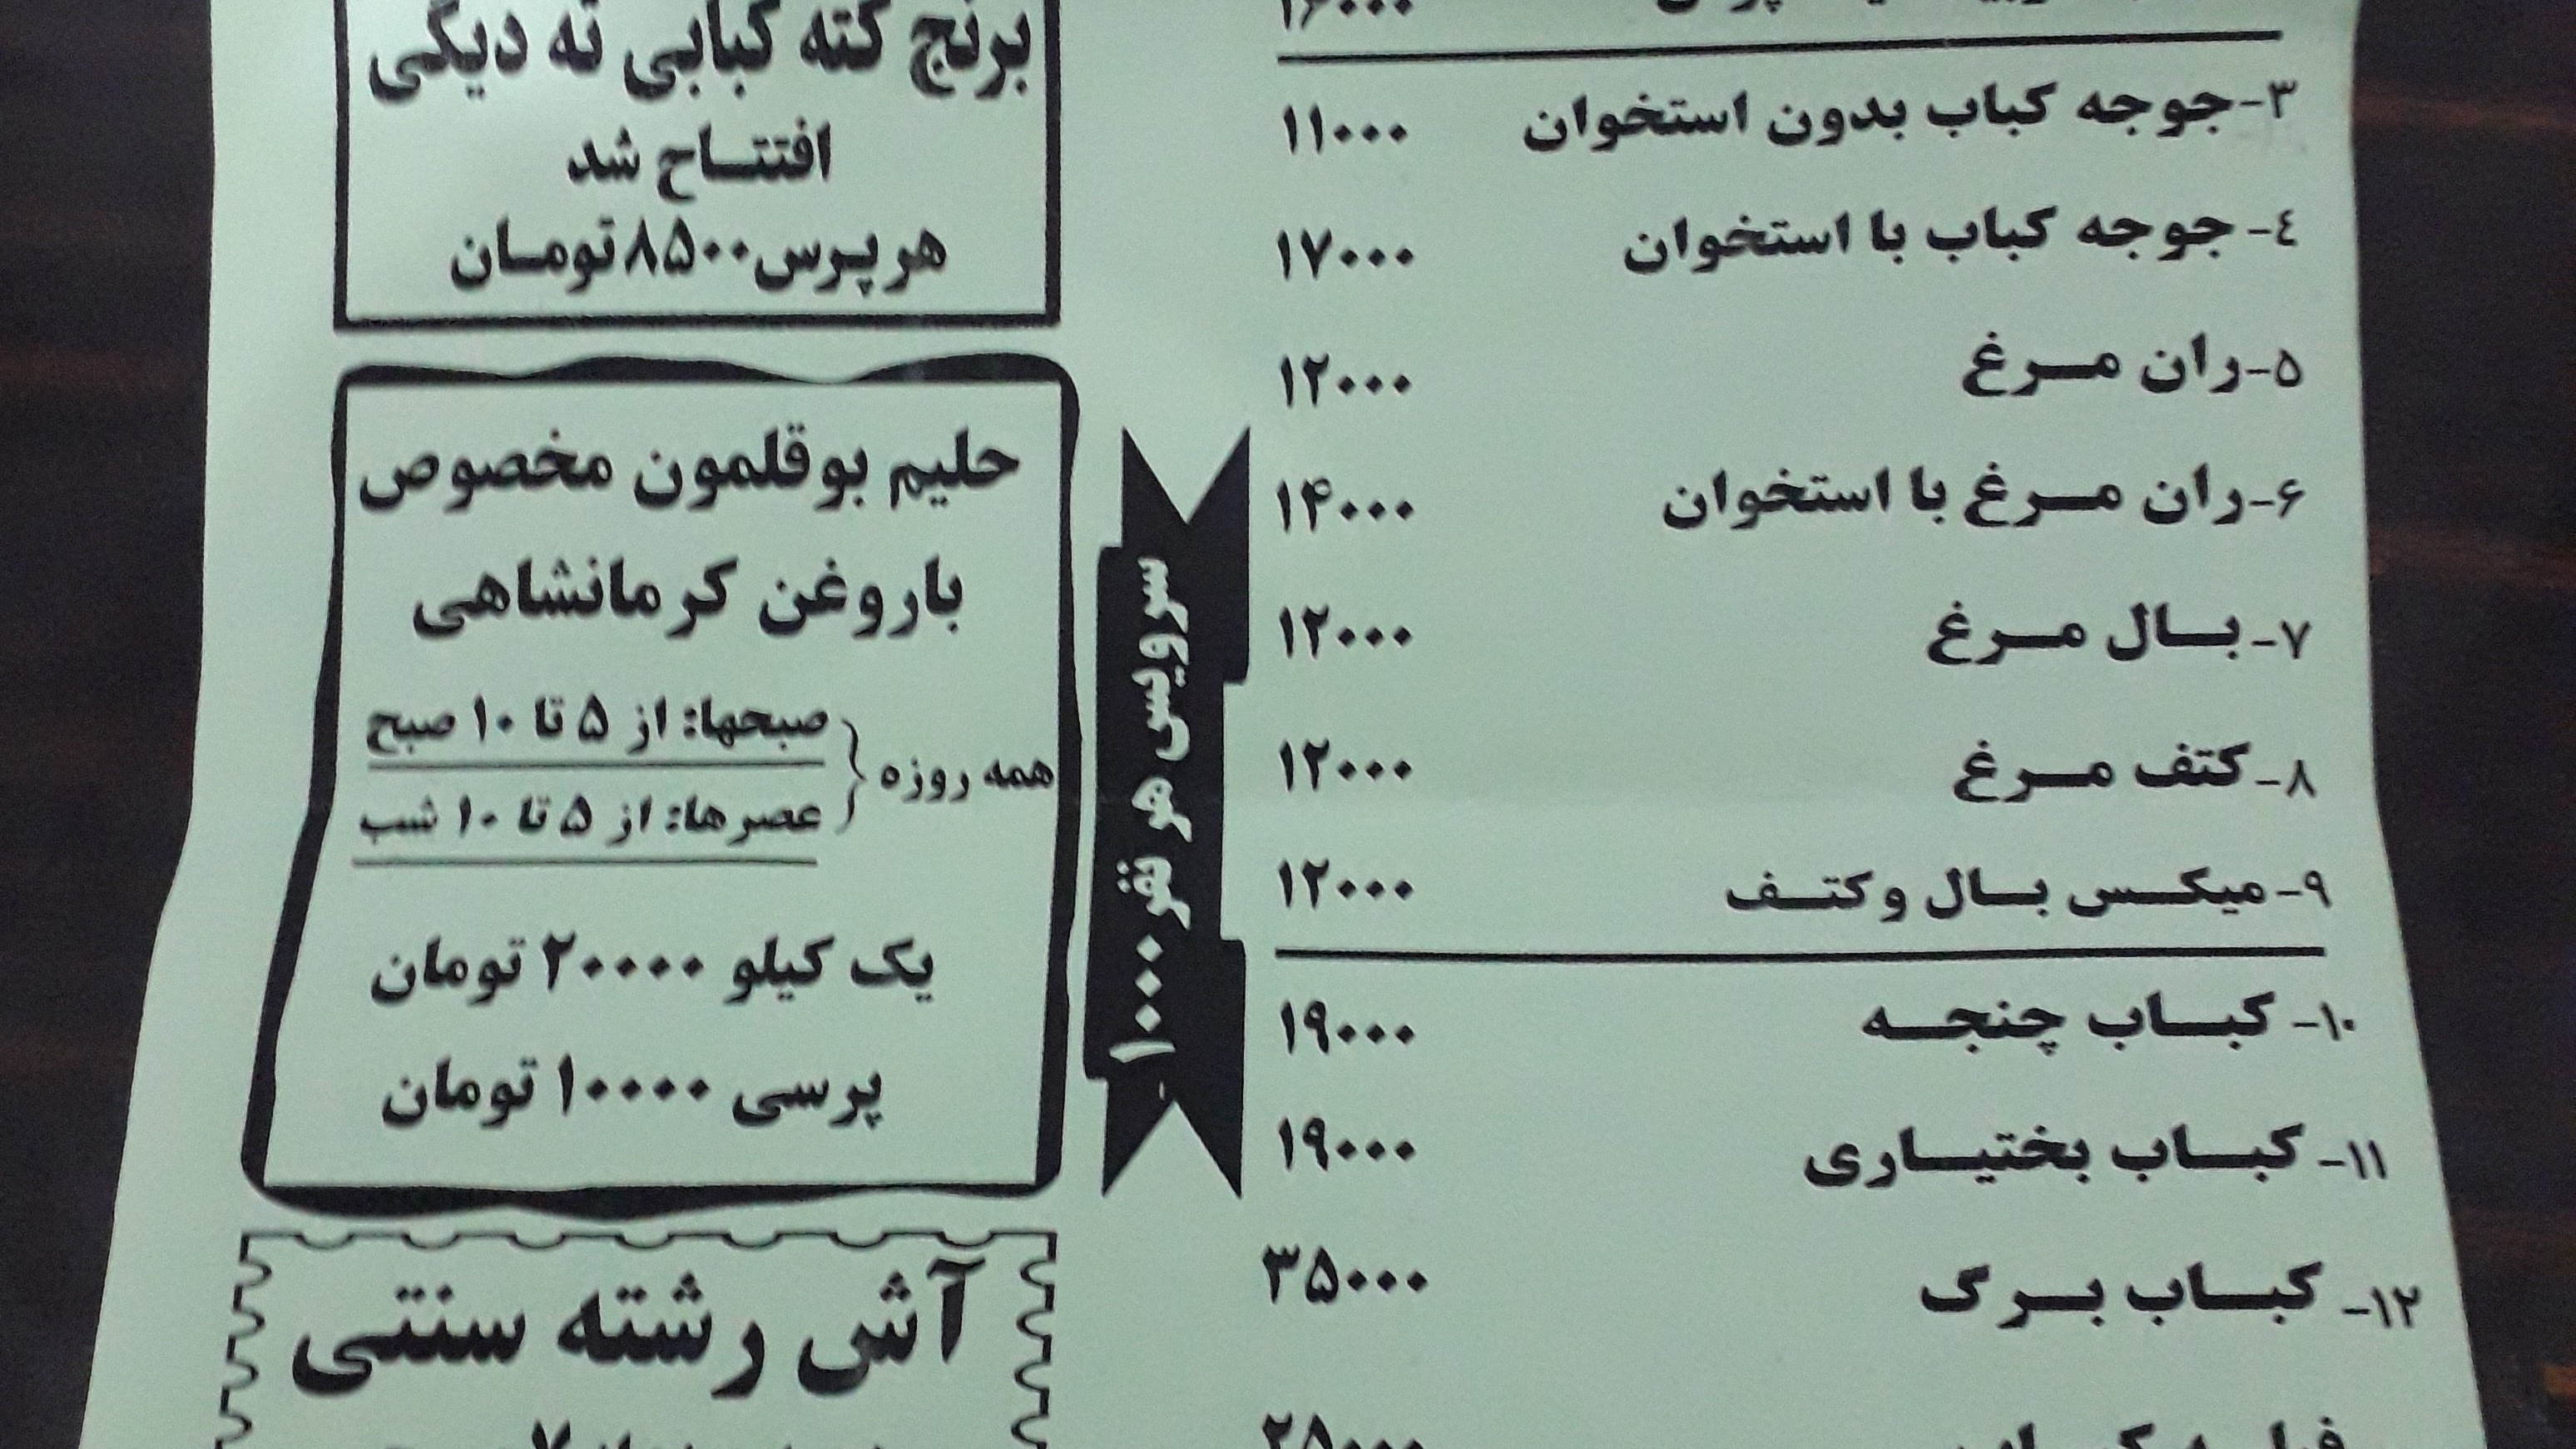 ۱۶۰۰۰
۳-جوجه کباب بدون استخوان ۱۱۰۰۰
٤-جوجه کباب با استخوان ۱۷۰۰۰
۵-ران مرغ ۱۲۰۰۰
۶-ران مرغ با استخوان ۱۴۰۰۰
۷-بال مرغ ۱۲۰۰۰
۸-کتف مرغ ۱۲۰۰۰
۹-میکس بال و کتف ۱۲۰۰۰
۱۰-کباب چنجه ۱۹۰۰۰
۱۱-کباب بختیاری ۱۹۰۰۰
۱۲-کباب برگ ۳۵۰۰۰
۲۵۰۰۰
سرویس هر نفر ۱۰۰۰
برنج کته کبابی ته دیگی
افتتاح شد
هر پرس ۸۵۰۰ تومان
حلیم بوقلمون مخصوص
با روغن کرمانشاهی
همه روزه
صبحها: از ۵ تا ۱۰ صبح
عصرها: از ۵ تا ۱۰ شب
یک کیلو ۲۰۰۰۰ تومان
پرسی ۱۰۰۰۰ تومان
آش رشته سنتی